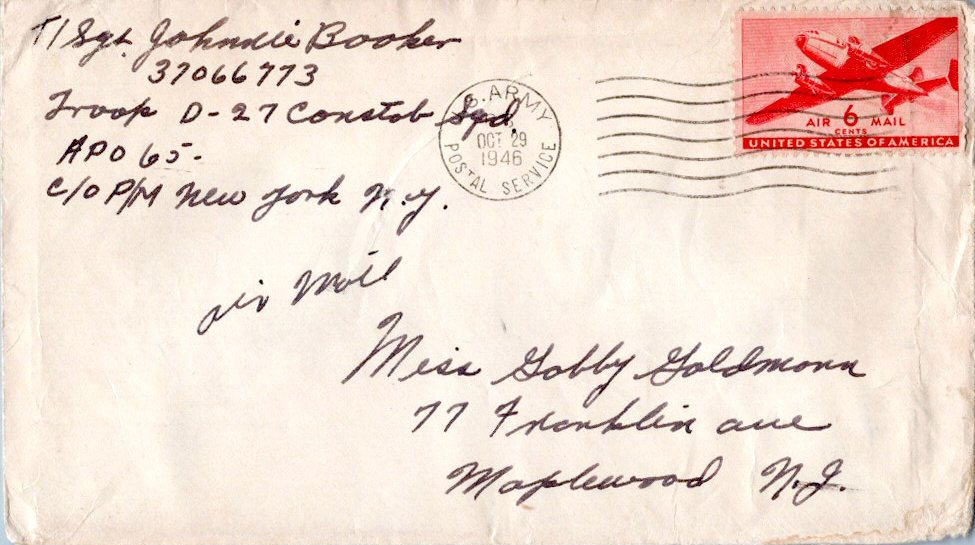 T/Sgt. Johnnie Booker
37066773
Troop D-27 Constab Sqd.
APO 65-
C/O P/M New York N.Y.
U.S. ARMY
OCT 29
1946
POSTAL SERVICE
AIR 6 MAIL
CENTS
UNITED STATES OF AMERICA
Air Mail
Miss Gobby Goldmann
77 Franklin ave
Maplewood N.J.